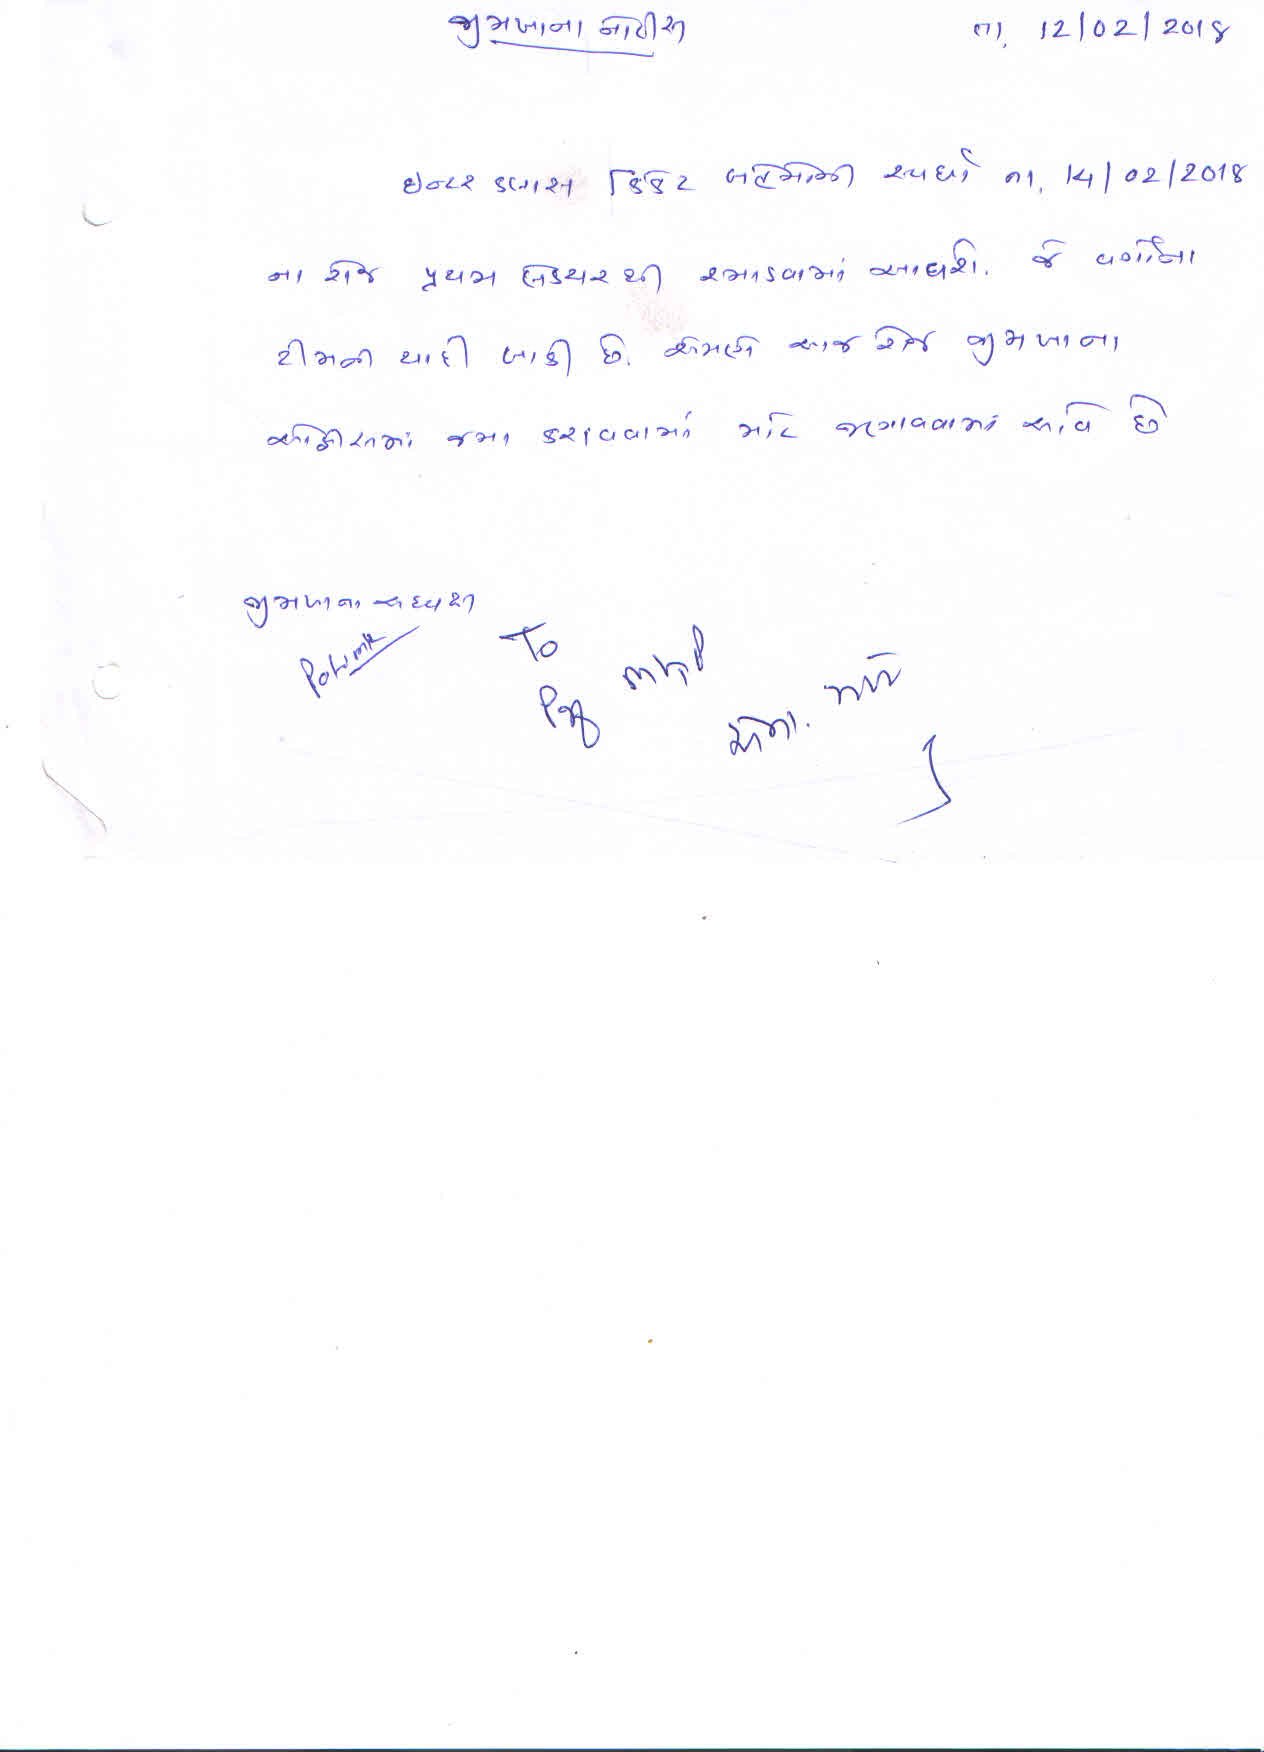 જીમખાના નોટીસ તા. 12/02/2018
ઇન્ટર કલાસ ક્રિકેટ સ્પર્ધા તા. 14/02/2018
ના રોજ પ્રથમ લેકચરથી રમાડવામાં આવશે. જે વર્ગોના
ટીમની યાદી બાકી છે. એમણે આજ રોજ જીમખાના
ઓફીસમાં જમા કરાવવામાં માટે જણાવવામાં આવે છે
જીમખાના અધ્યક્ષ
To